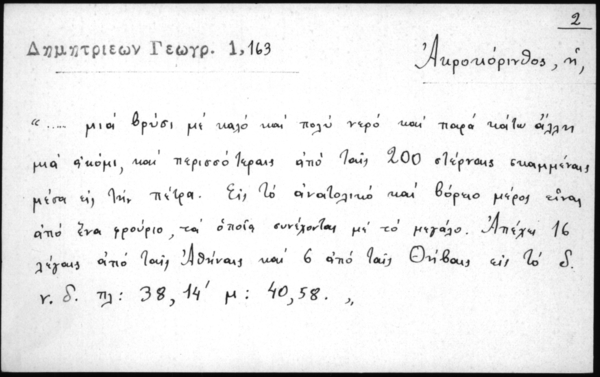 2
Δημητριεων Γεωγρ. 1,163
Ἀκροκόρινθος, ἡ,
“..... μιά βρύσι μέ καλό καί πολύ νερό καί παρά κάτω ἄλλη
μιά ἀκόμι, καί περισσότεραις ἀπό ταῖς 200 στέρναις σκαμμέναις
μέσα εἰς τήν πέτρα. Εἰς τό ἀνατολικό καί βόρειο μέρος εἶναι
ἀπό ἕνα φρούριο, τά ὁποῖα συνέχονται μέ τό μεγάλο. Ἀπέχει 16
λέγαις ἀπό ταῖς Ἀθήναις καί 6 ἀπό ταῖς Θήβαις εἰς τό δ.
ν. δ. πλ: 38, 14′ μ: 40,58. „